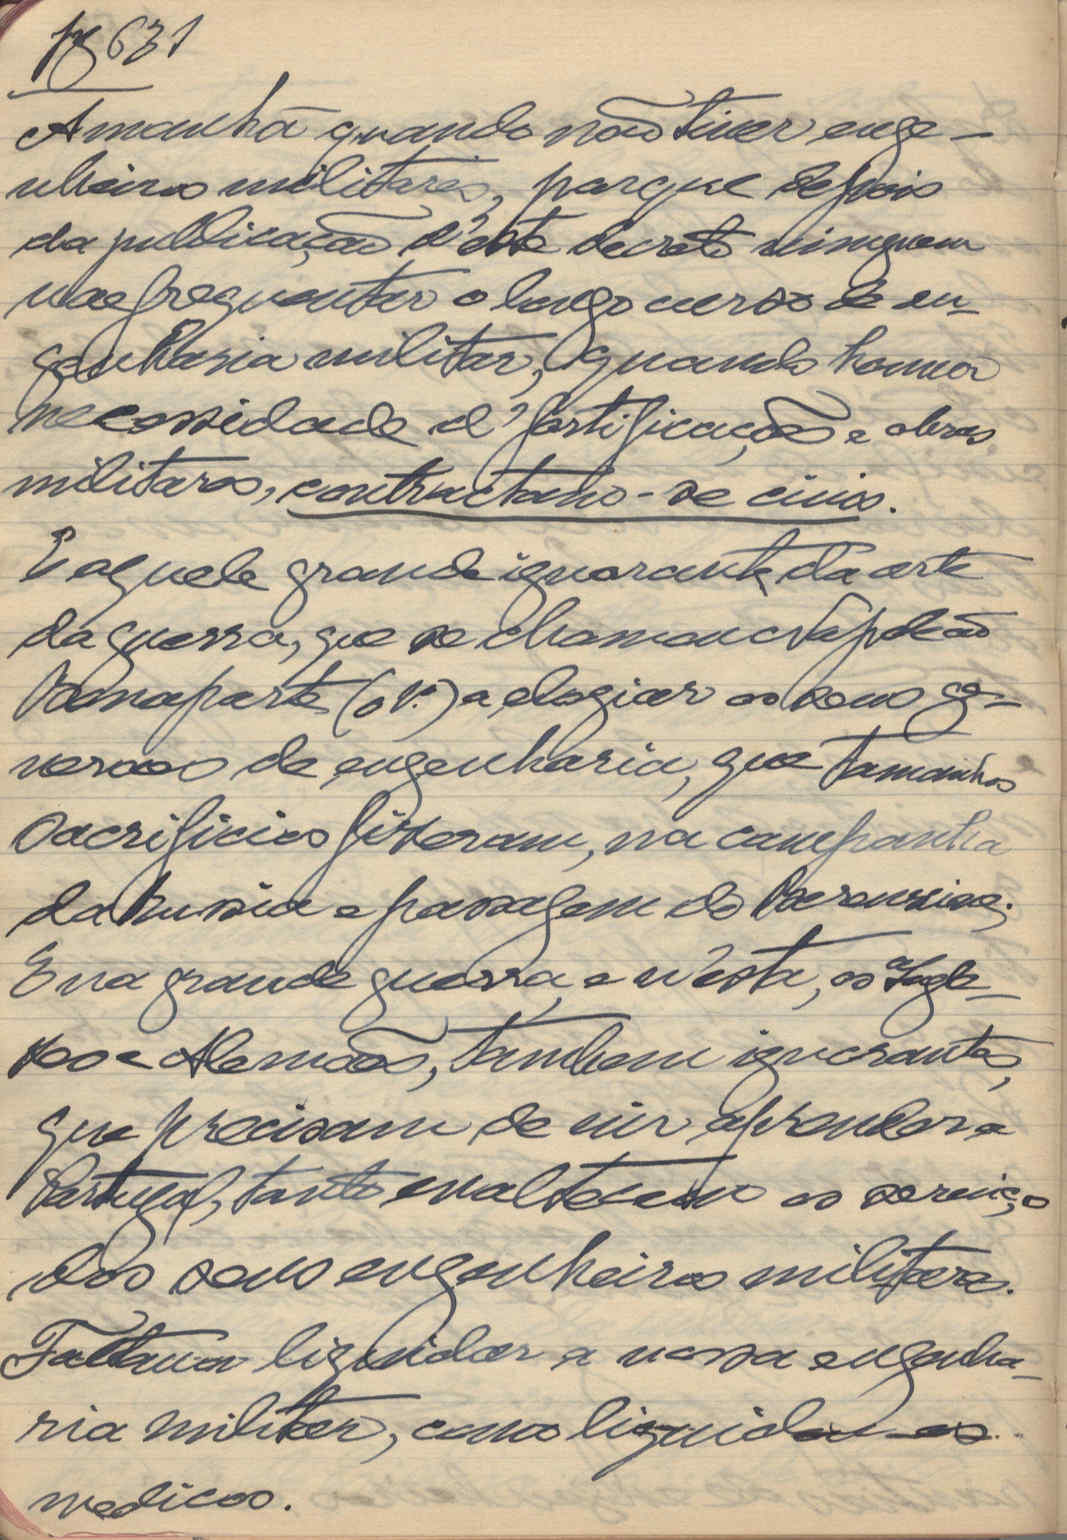 pg 631
Amanhã quando não tiver enge-
nheiros militares, porque depois
da publicação d'este decreto ninguem
vae frequentar o longo curso de en-
genharia militar, quando houver
necessidade d'fortificações e obras
militares, contractam-se civis.
E aquele grande ignorante da arte
da guerra, que se chamou Napoleão
Bonaparte (o 1º.) a elogiar os seus ge-
neraes de engenharia, que tamanhos
sacrificios fizeram, na campanha
da Russia e passagem do Beresina;
E na grande guerra, e n'esta, os Ingle-
zes e Alemães, tambem ignorantes,
que precisam de vir aprender a
Portugal, tanto enaltecem os serviço
dos seus engenheiros militares.
Faltava liquidar a nossa engenha-
ria militar, como liquidou os
medicos.